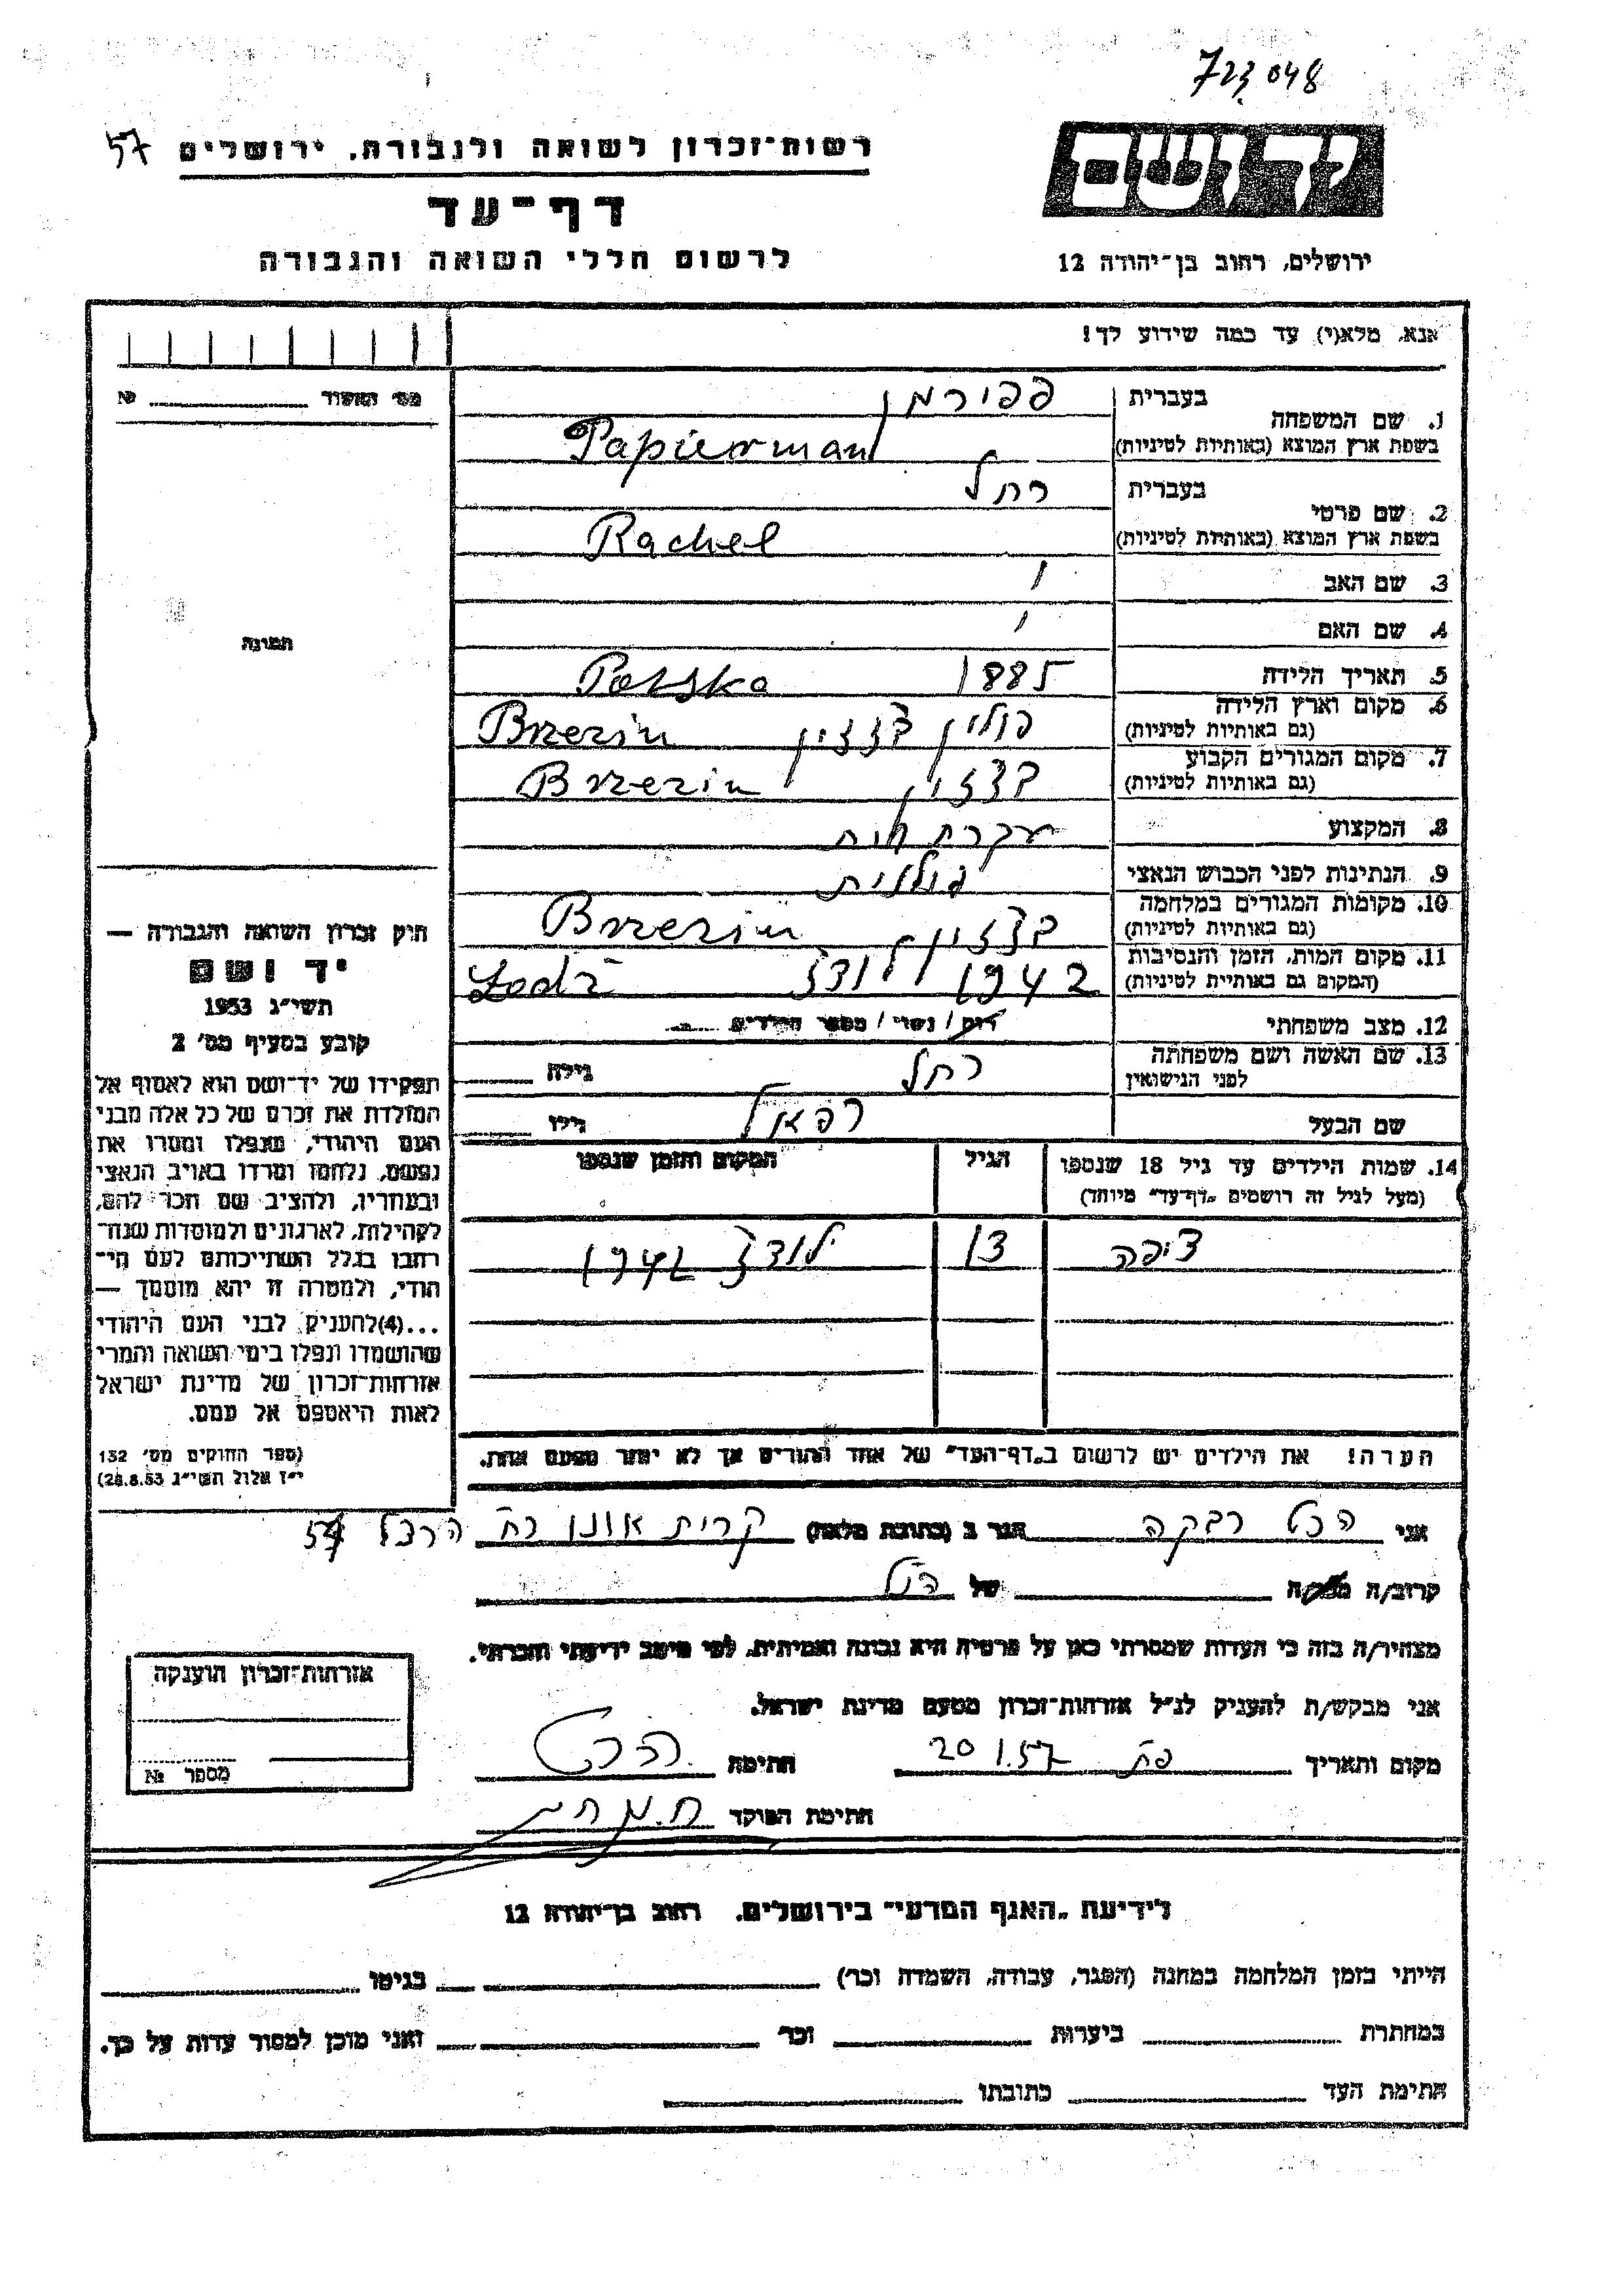 723 048
57
רשות־זכרון לשואה ולגבורה, ירושלים
דף־עד
לרשום חללי השואה והגבורה
ירושלים, רחוב בן־יהודה 12
אנא, מלא(י) עד כמה שידוע לך!
מס׳ האשור № 
1. שם המשפחה
בעברית פפירמן
בשפת ארץ המוצא (באותיות לטיניות) Papierman
2. שם פרטי
בעברית רחל
בשפת ארץ המוצא (באותיות לטיניות) Rachel
3. שם האב
4. שם האם
5. תאריך הלידה 1885 Polska
6. מקום וארץ הלידה
(גם באותיות לטיניות) פולין בזזין Brzezin
7. מקום המגורים הקבוע
(גם באותיות לטיניות) בזזין Brzezin
8. המקצוע עקרת בית
9. הנתינות לפני הכבוש הנאצי פולנית
10. מקומות המגורים במלחמה
(גם באותיות לטיניות) בזזין Brzezin
11. מקום המות, הזמן והנסיבות
(המקום גם באותיות לטיניות) 1942 לודז Lodz
12. מצב משפחתי רווק/ נשוי/ מספר הילדים
13. שם האשה ושם משפחתה
לפני הנישואין רחל גילה
שם הבעל רפאל גילו
14. שמות הילדים עד גיל 18 שנספו
(מעל לגיל זה רושמים „דף־עד״ מיוחד)
הגיל
המקום והזמן שנספו
ציפה 13 לודז 1942
הערה! את הילדים יש לרשום ב„דף־העד״ של אחד ההורים אך לא יותר מפעם אחת.
תמונה
חוק זכרון השואה והגבורה —
יד ושם
תשי״ג 1953
קובע בסעיף מס׳ 2
תפקידו של יד־ושם הוא לאסוף אל
המולדת את זכרם של כל אלה מבני
העם היהודי, שנפלו ומסרו את
נפשם, נלחמו ומרדו באויב הנאצי
ובעוזריו, ולהציב שם וזכר להם,
לקהילות, לארגונים ולמוסדות שנח־
רבו בגלל השתייכותם לעם הי־
הודי, ולמטרה זו יהא מוסמך —
...(4)להעניק לבני העם היהודי
שהושמדו ונפלו בימי השואה והמרי
אזרחות־זכרון של מדינת ישראל
לאות היאספם אל עמם.
(ספר החוקים מס׳ 132
י״ז אלול תשי״ג 28.8.53)
אני הכט רבקה הגר ב (כתובת מלאה) קרית אונו רח הרצל 54
קרוב/ה מכר/ה של הנ״ל
מצהיר/ה בזה כי העדות שמסרתי כאן על פרטיה היא נכונה ואמיתית, לפי מיטב ידיעתי והכרתי.
אני מבקש/ת להעניק לנ״ל אזרחות־זכרון מטעם מדינת ישראל.
מקום ותאריך פת 20.1.57 חתימה הכט
חתימת הפוקד
אזרחות־זכרון הוענקה
מספר №
לידיעת „האגף המדעי״ בירושלים, רחוב בן־יהודה 12
הייתי בזמן המלחמה במחנה (הסגר, עבודה, השמדה וכר) בגיטו
במחתרת ביערות וכר ואני מוכן למסור עדות על כך.
חתימת העד כתובתו